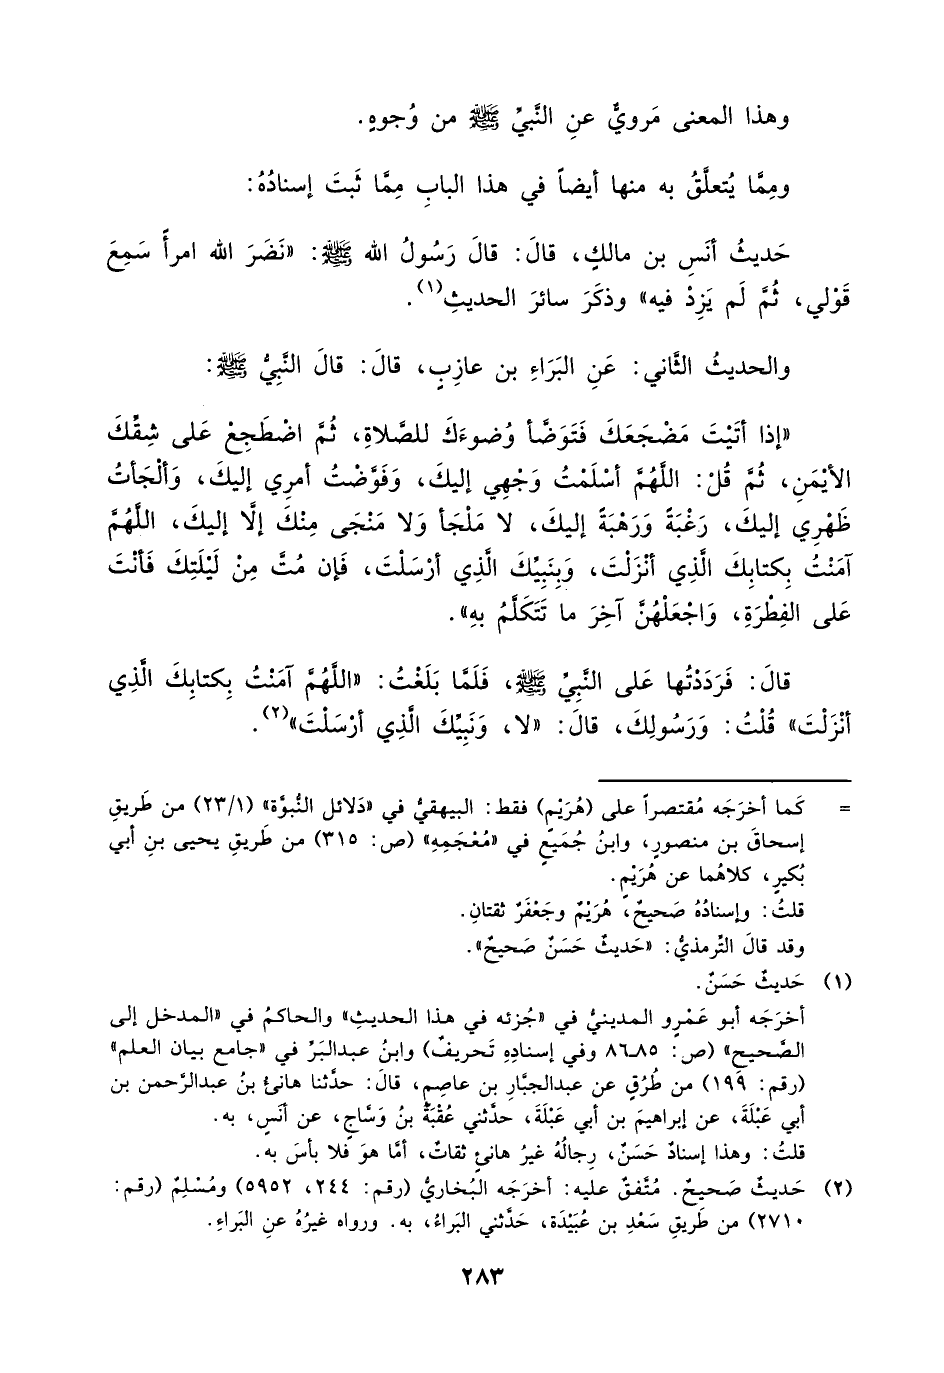 وهذا المعنى مَرويٌّ عنِ النَّبيِّ ﷺ من وُجوهٍ.
ومِمَّا يُتعلَّقُ به منها أيضاً في هذا البابِ مِمَّا ثَبتَ إسنادُهُ:
حَديثُ أنَسِ بن مالكٍ، قالَ: قالَ رَسُولُ الله ﷺ: «نَضَرَ الله امرأً سَمِعَ
قَوْلي، ثُمَّ لَم يَزِدْ فيه» وذكَرَ سائرَ الحديثِ(١).
والحديثُ الثَّاني: عَنِ البَرَاءِ بن عازِبٍ، قالَ: قالَ النَّبيُّ ﷺ:
«إذا أتَيْتَ مَضْجَعَكَ فَتَوَضَّأ وُضوءَكَ للصَّلاةِ، ثُمَّ اضْطَجِعْ عَلى شِقِّكَ
الأيْمَنِ، ثُمَّ قُلْ: اللَّهُمَّ أسْلَمْتُ وَجْهِي إليكَ، وَفَوَّضْتُ أمرِي إليكَ، وَألْجَأتُ
ظَهْرِي إليكَ، رَغْبَةً وَرَهْبَةً إليكَ، لا مَلْجَأ وَلا مَنْجَى مِنْكَ إلَّا إليكَ، اللَّهُمَّ
آمَنْتُ بِكتابِكَ الَّذِي أنْزَلْتَ، وَبِنَبِيِّكَ الَّذِي أرْسَلْتَ، فَإن مُتَّ مِنْ لَيْلَتِكَ فَأنْتَ
عَلى الفِطْرَةِ، وَاجْعَلْهُنَّ آخِرَ ما تَتَكَلَّمُ بهِ».
قالَ: فَرَدَدْتُها عَلى النَّبيِّ ﷺ، فَلَمَّا بَلَغْتُ: «اللَّهُمَّ آمَنْتُ بِكتابِكَ الَّذِي
أنْزَلْتَ» قُلْتُ: وَرَسُولِكَ، قالَ: «لا، وَنَبِيِّكَ الَّذِي أرْسَلْتَ»(٢).
= كَما أخرَجَه مُقتصراً على (هُرَيْمٍ) فقط: البيهقيُّ في «دَلائل النُّبوَّة» (٢٣/١) من طَريقِ
إسحاقَ بن منصورٍ، وابنُ جُمَيعٍ في «مُعْجَمِهِ» (ص: ٣١٥) من طَريقِ يحيى بنِ أبي
بُكيرٍ، كلاهُما عن هُرَيْمٍ.
قلتُ: وإسنادُهُ صَحيحٌ، هُرَيْمٌ وجَعْفَرٌ ثقتانِ.
وقد قالَ التِّرمذيُّ: «حَديثٌ حَسَنٌ صَحيحٌ».
(١) حَديثٌ حَسَنٌ.
أخرَجَه أبو عَمْرٍو المدينيُّ في «جُزئه في هذا الحديثِ» والحاكمُ في «المدخل إلى
الصَّحيح» (ص: ٨٥ـ٨٦ وفي إسنادِهِ تَحريفٌ) وابنُ عبدالبَرِّ في «جامع بيان العلم»
(رقم: ١٩٩) من طُرُقٍ عن عبدالجبَّارِ بن عاصِمٍ، قالَ: حدَّثنا هانئُ بنُ عبدالرَّحمن بن
أبي عَبْلَةَ، عن إبراهيمَ بن أبي عبلَةَ، حدَّثني عُقْبَةُ بنُ وَسَّاجٍ، عن أنَسٍ، به.
قلتُ: وهذا إسنادٌ حَسَنٌ، رِجالُهُ غيرُ هانئٍ ثقاتٌ، أمَّا هوَ فَلا بأسَ به.
(٢) حَديثٌ صَحيحٌ. مُتَّفقٌ عليه: أخرَجَه البُخاريُّ (رقم: ٢٤٤، ٥٩٥٢) ومُسْلِمٌ (رقم:
٢٧١٠) من طَريقِ سَعْدِ بن عُبَيْدَة، حَدَّثني البَراءُ، به. ورواه غيرُهُ عنِ البَراءِ.
٢٨٣